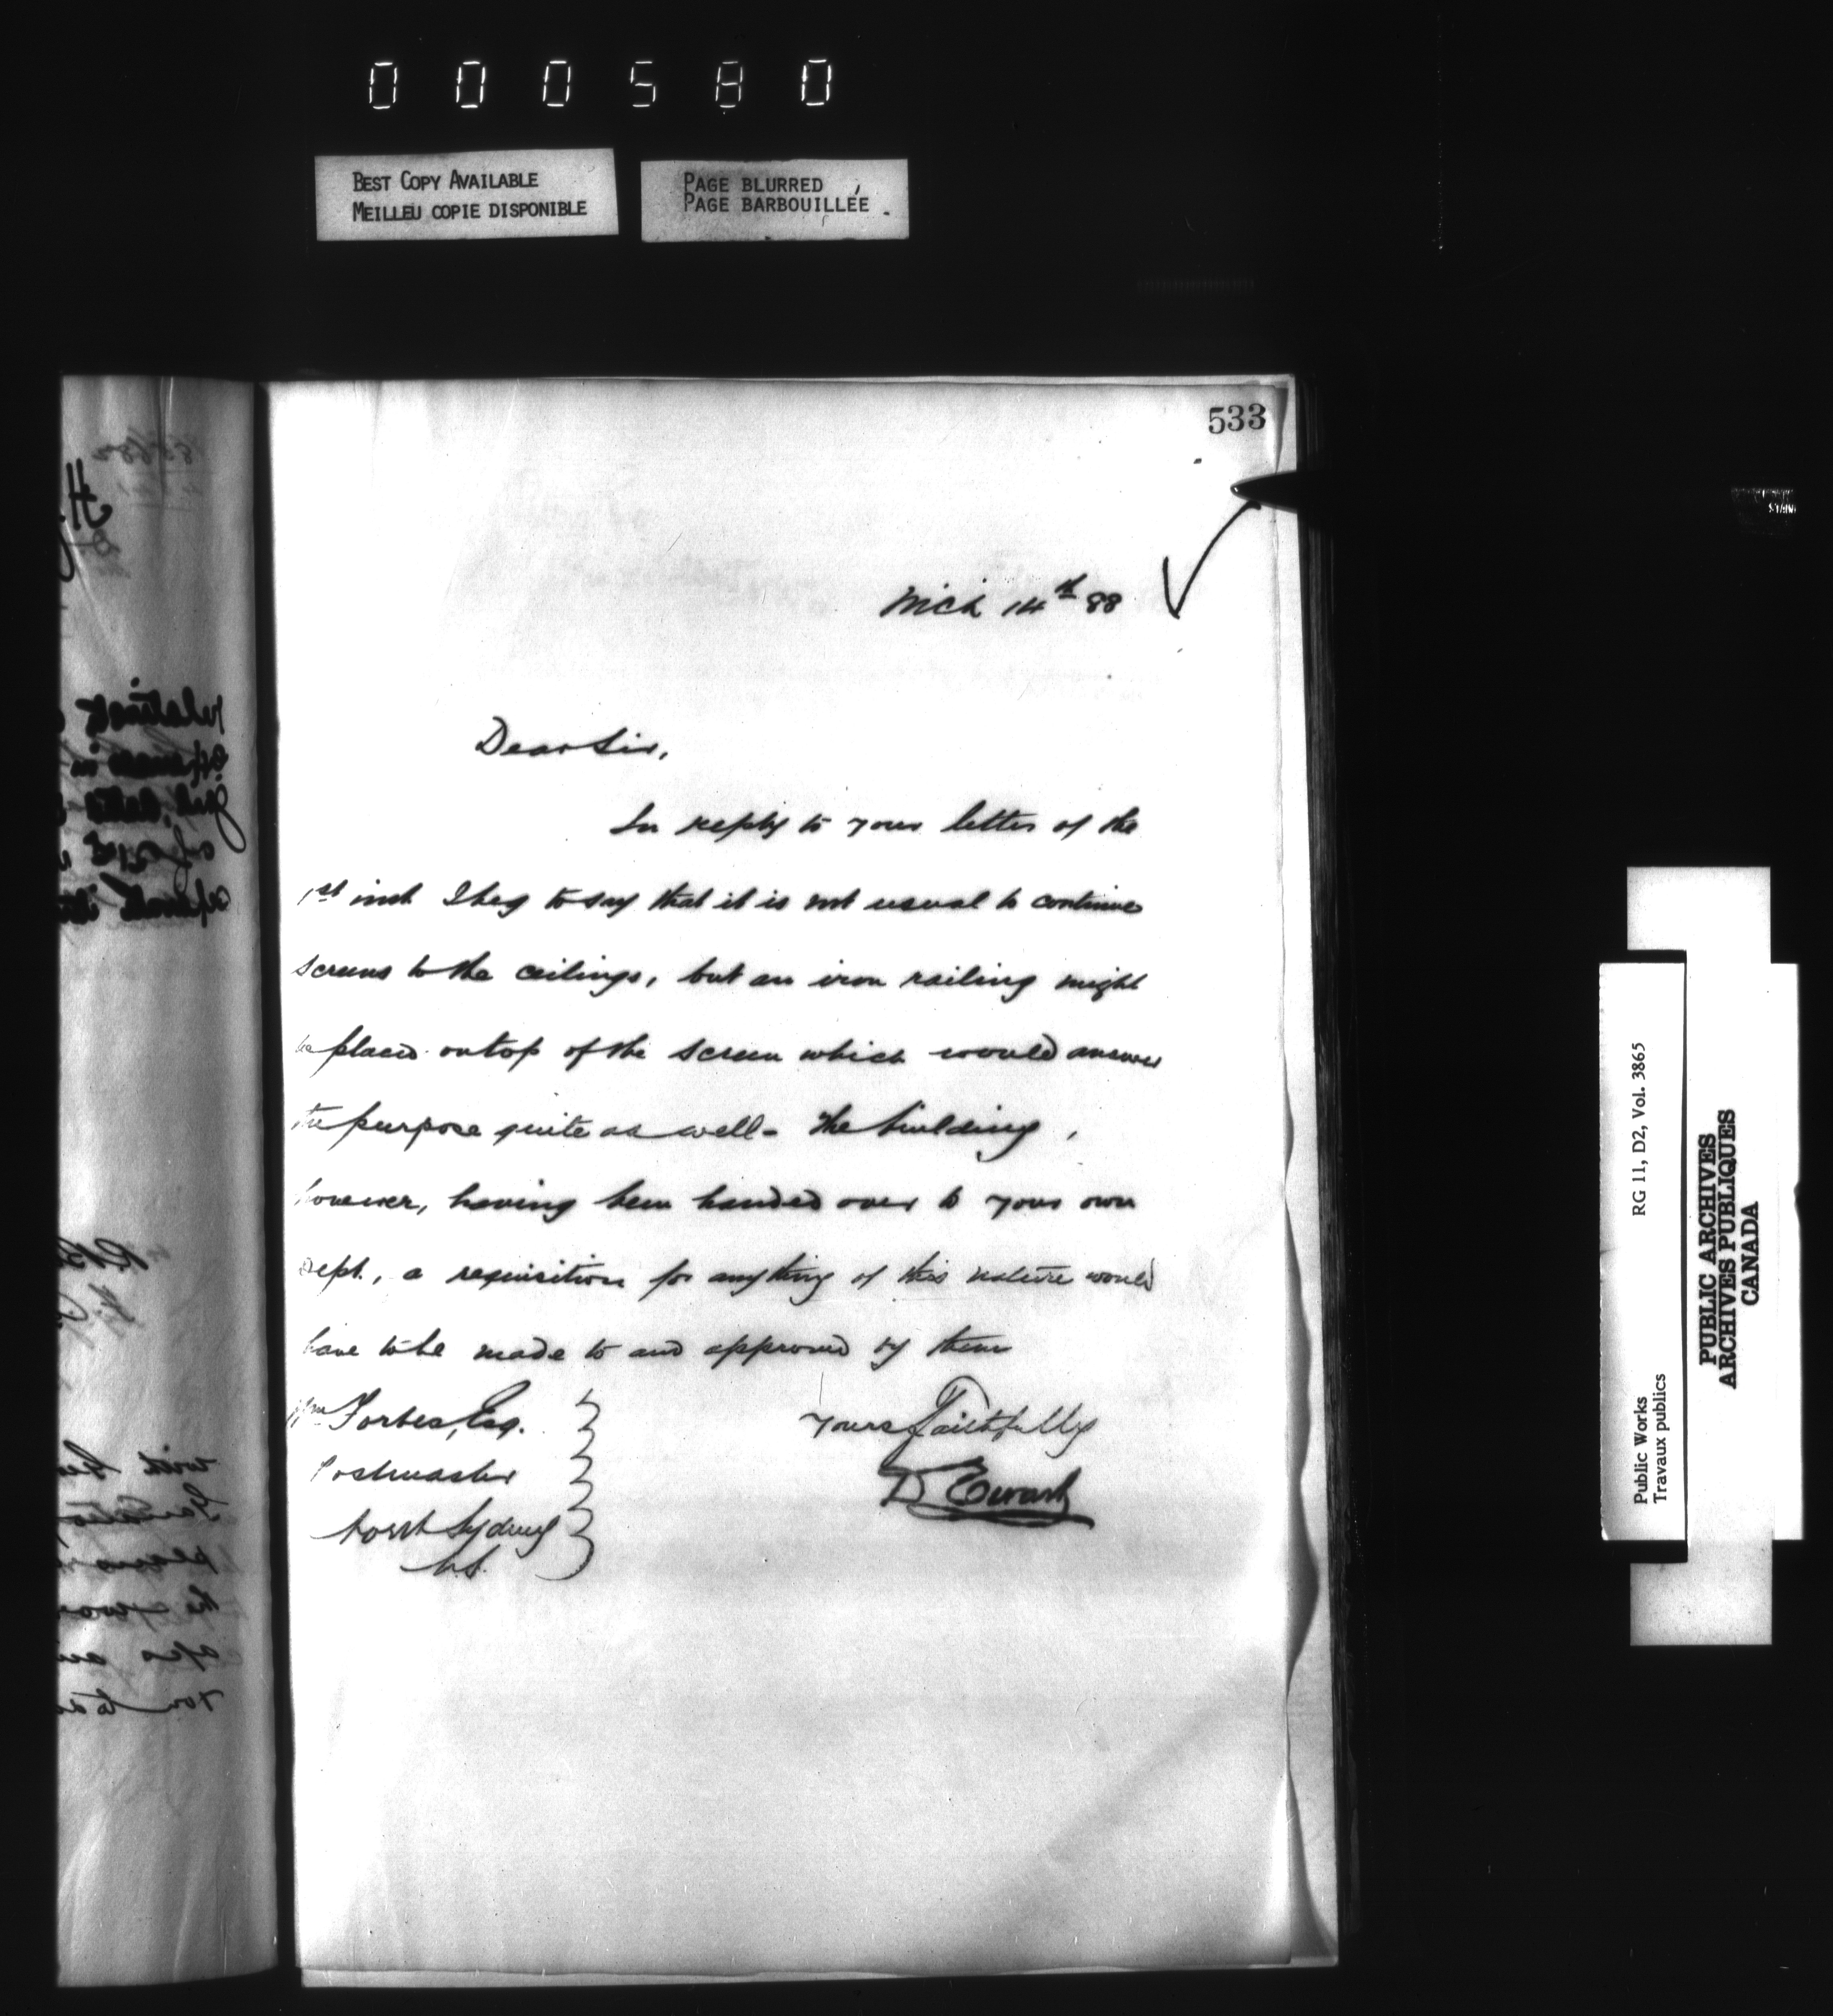 000580
BEST COPY AVAILABLE
MEILLEU COPIE DISPONIBLE
PAGE BLURRED
PAGE BARBOUILLÉE
533
Mch 14th 88
Dear Sir,
In reply to your letter of the
1st inst I beg to say that it is not usual to continue
screens to the ceilings, but an iron railing might
be placed on top of the screen which would answer
the purpose quite as well - The building,
however, having been handed over to your own
Dept., a requisition for anything of this nature would
have to be made to and approved by them
Yours Faithfully
D Ewart
Wm Forbes, Esq.
Postmaster
North Sydney
N.S.
Public Works
Travaux publics
RG 11, D2, Vol. 3865
PUBLIC ARCHIVES
ARCHIVES PUBLIQUES
CANADA